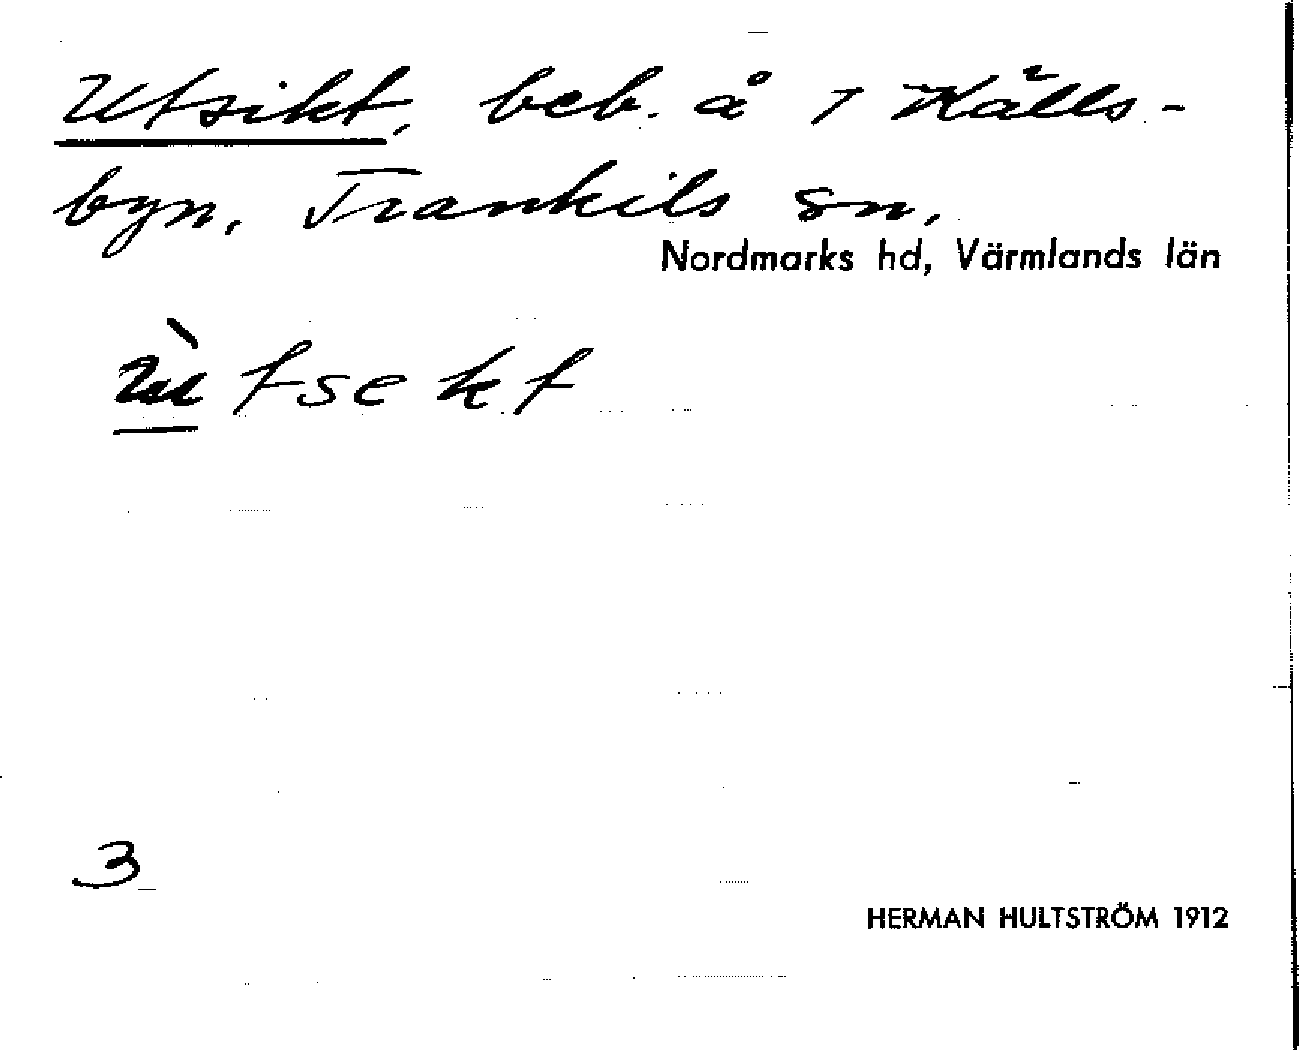 Utsikt, beb. å 1 Källs-
byn, Trankils sn,
Nordmarks hd, Värmlands län
ùtsekt
3
HERMAN HULTSTRÖM 1912